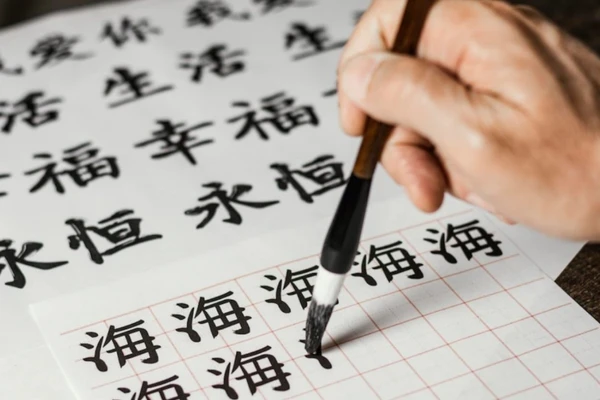 爱你我爱
活生活生
福幸福
永恒永恒
海海海海海
海海